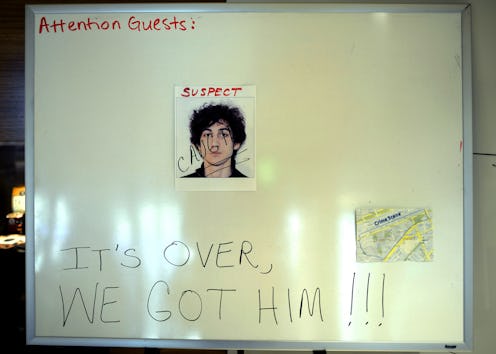 Attention Guests:
SUSPECT
CAUGHT
Crime Scene
IT'S OVER,
WE GOT HIM !!!